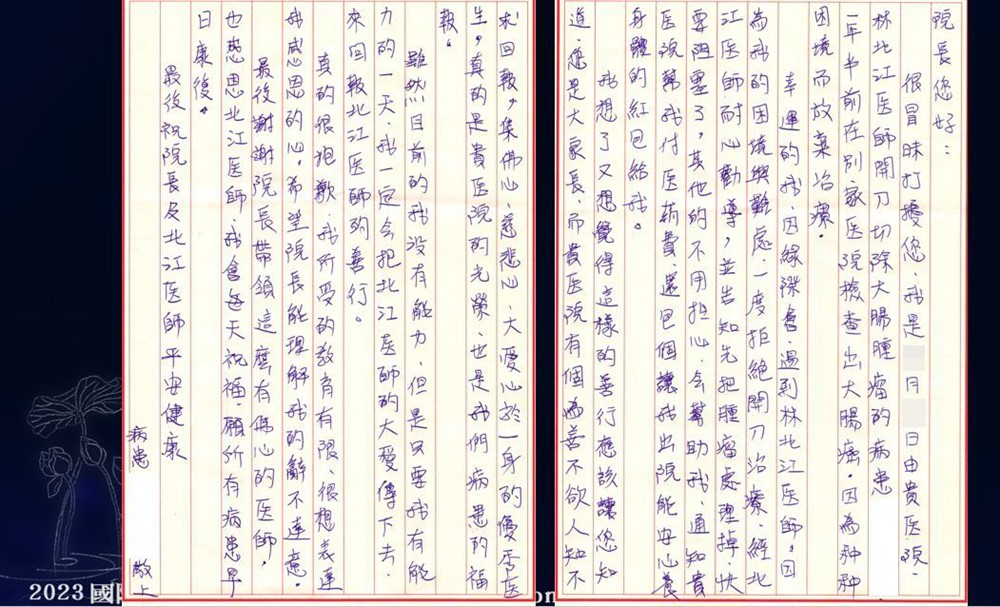 院長您好：
很冒昧打擾您，我是 月 日由貴医院，
林北江医師開刀切除大腸腫瘤的病患
一年半前在別家医院檢查出大腸癌。因為种种
困境而放棄治療。
幸運的我，因緣際會，遇到林北江医師，因
為我的困境與難處，一度拒絕開刀治療，經北
江医師耐心勸導，並告知先把腫瘤處理掉，快
要阻塞了，其他的不用担心，会幫助我，通知貴
医院幫我付医葯費，還包個讓我出院能安心養
身體的紅包給我。
我想了又想覺得這樣的善行應該讓您知
道，您是大家長，而貴医院有個為善不欲人知不
求回報，集佛心、慈悲心、大愛心於一身的優秀医
生，真的是貴医院的光榮，也是我們病患的福
報。
雖然目前的我沒有能力，但是只要我有能
力的一天，我一定会把北江医師的大愛傳下去，
來回報北江医師的善行。
真的很抱歉，我所受的教育有限，很想表達
我感恩的心，希望院長能理解我的辭不達意。
最後謝謝院長帶領這麼有佛心的医師，
也感恩北江医師，我會每天祝福，願所有病患早
日康復。
最後祝院長及北江医師平安健康
病患 敬上
2023 國
on